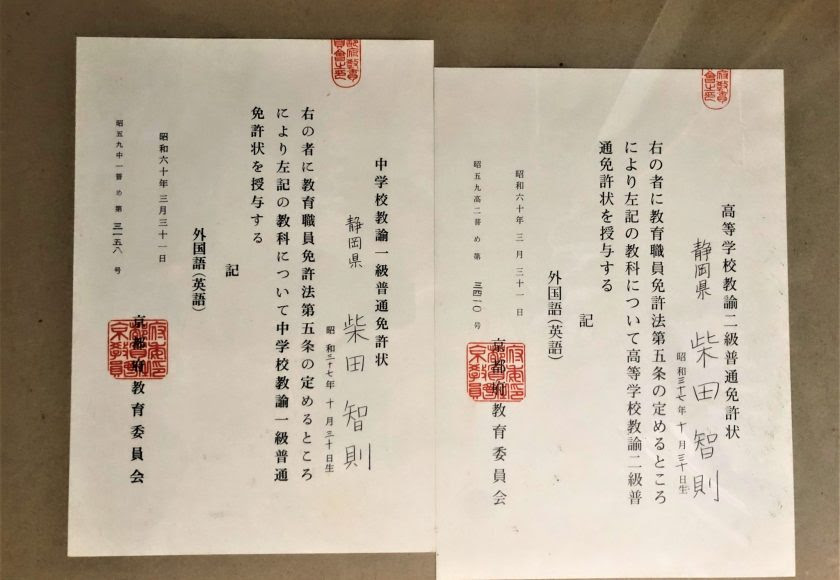 高等学校教諭二級普通免許状
静岡県 柴田智則
昭和三十七年十月三十日生
右の者に教育職員免許法第五条の定めるところ
により左記の教科について高等学校教諭二級普
通免許状を授与する
記
外国語(英語)
昭和六十年三月三十一日
京都府教育委員会
昭五九高二普め第三四二〇号
中学校教諭一級普通免許状
静岡県 柴田智則
昭和三十七年十月三十日生
右の者に教育職員免許法第五条の定めるところ
により左記の教科について中学校教諭一級普通
免許状を授与する
記
外国語(英語)
昭和六十年三月三十一日
京都府教育委員会
昭五九中一普め第三一五八号